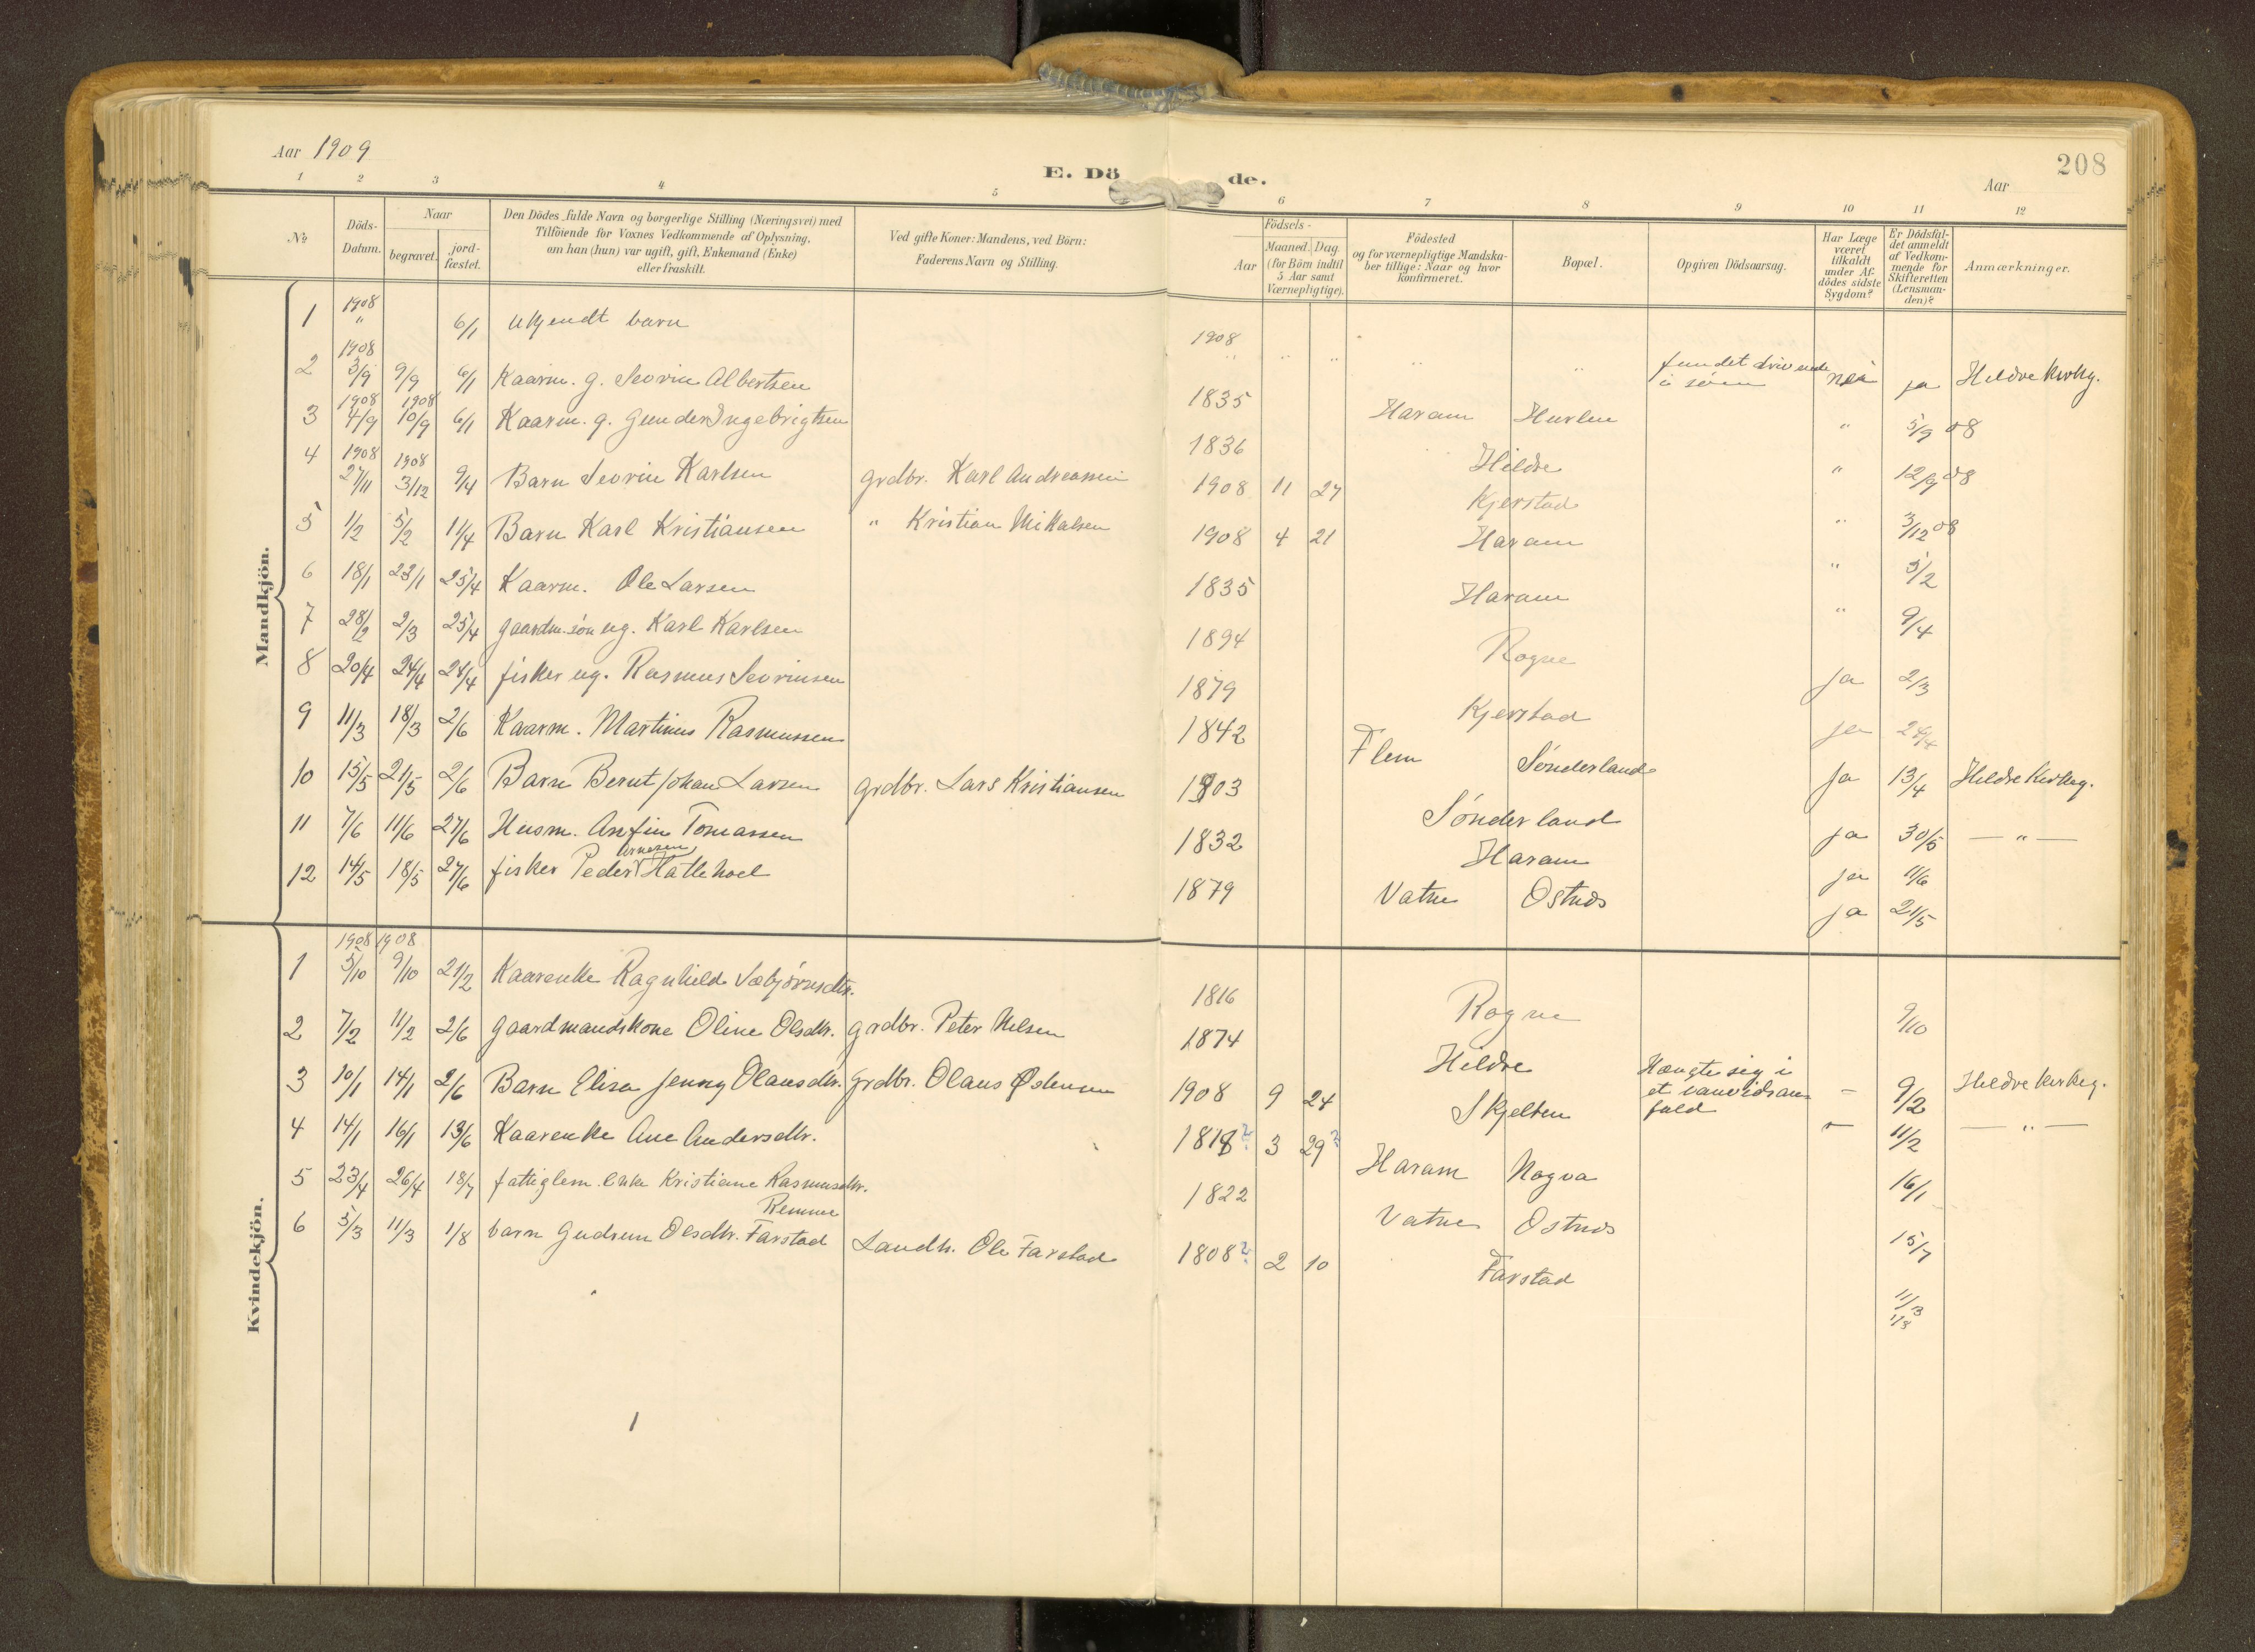 Aar 1909
E. Dö de.
208
Aar
1 2 3 4 5 6 7 8 9 10 11 12
No
Döds-Datum.
Naar
begravet.
jord-fæstet.
Den Dödes fulde Navn og borgerlige Stilling (Næringsvei) med
Tilföiende for Voxnes Vedkommende af Oplysning,
om han (hun) var ugift, gift, Enkemand (Enke)
eller fraskilt.
Ved gifte Koner: Mandens, ved Börn:
Faderens Navn og Stilling.
Födsels-
Aar
Maaned. Dag.
(for Börn indtil
5 Aar samt
Værnepligtige).
Födested
og for værnepligtige Mandska-
ber tillige: Naar og hvor
Konfirmeret.
Bopæl.
Opgiven Dödsaarsag.
Har Læge
været
tilkaldt
under Af-
dödes sidste
Sygdom?
Er Dödsfal-
det anmeldt
af Vedkom-
mende for
Skifteretten
(Lensman-
den)?
Anmærkninger.
Mandkjön.
1 1908 " 6/1 Ukjendt barn 1908 " " " " " fundet drivende i søen nei ja Hildre kirkg.
2 1908 3/9 9/9 6/1 Kaarm. g. Sevrin Albertsen 1835 Haram Hurlen " 5/9 08
3 1908 4/9 1908 10/9 6/1 Kaarm. g. Gunder Ingebrigtsen 1836 Hildre " 12/9 08
4 1908 27/11 1908 3/12 9/4 Barn Sevrin Karlsen grdbr. Karl Andreassen 1908 11 27 Kjerstad " 3/12 08
5 1/2 5/2 11/4 Barn Karl Kristiansen " Kristian Mikalsen 1908 4 21 Haram " 5/2
6 18/1 23/1 25/4 Kaarm. Ole Larsen 1835 Haram " 9/4
7 28/2 2/3 25/4 gaardm.søn ug. Karl Karlsen 1894 Rogne ja 2/3
8 20/4 24/4 24/4 fisker ug. Rasmus Sevrinsen 1879 Kjerstad ja 24/4
9 11/3 18/3 2/6 Kaarm. Martinus Rasmussen 1842 Flem Sønderland ja 13/4 Hildre Kirkeg.
10 15/5 21/5 2/6 Barn Bernt Johan Larsen grdbr. Lars Kristiansen 1903 Sønderland ja 30/5 — " —
11 7/6 11/6 27/6 Husm. Anfin Tomassen 1832 Haram ja 11/6
12 14/5 18/5 27/6 fisker Peder Arnesen Hatlehoel 1879 Vatne Ostnes ja 21/5
Kvindekjön.
1 1908 5/10 1908 9/10 21/2 Kaarenke Ragnhild Sæbjørnsdtr. 1816 Rogne 9/10
2 7/2 11/2 2/6 Gaardmandskone Oline Olsdtr. grdbr. Peter Nilsen 1874 Hildre Hængte sig i et vanvidsan- fald — 9/2 Hildre kirkeg.
3 10/1 14/1 2/6 Barn Elisa Jenny Olausdtr. grdbr. Olaus Østensen 1908 9 24 Skjelten — 11/2 — " —
4 14/1 16/1 13/6 Kaarenke Ane Andersdtr. 1818? 3 29? Haram Nogva 16/1
5 23/4 26/4 18/7 fattiglem. Enke Kristiane Rasmusdtr. Remme 1822 Vatne Ostnes 15/7
6 5/3 11/3 1/8 barn Gudrun Olsdtr. Farstad Landh. Ole Farstad 1808? 2 10 Farstad 11/3
1/8